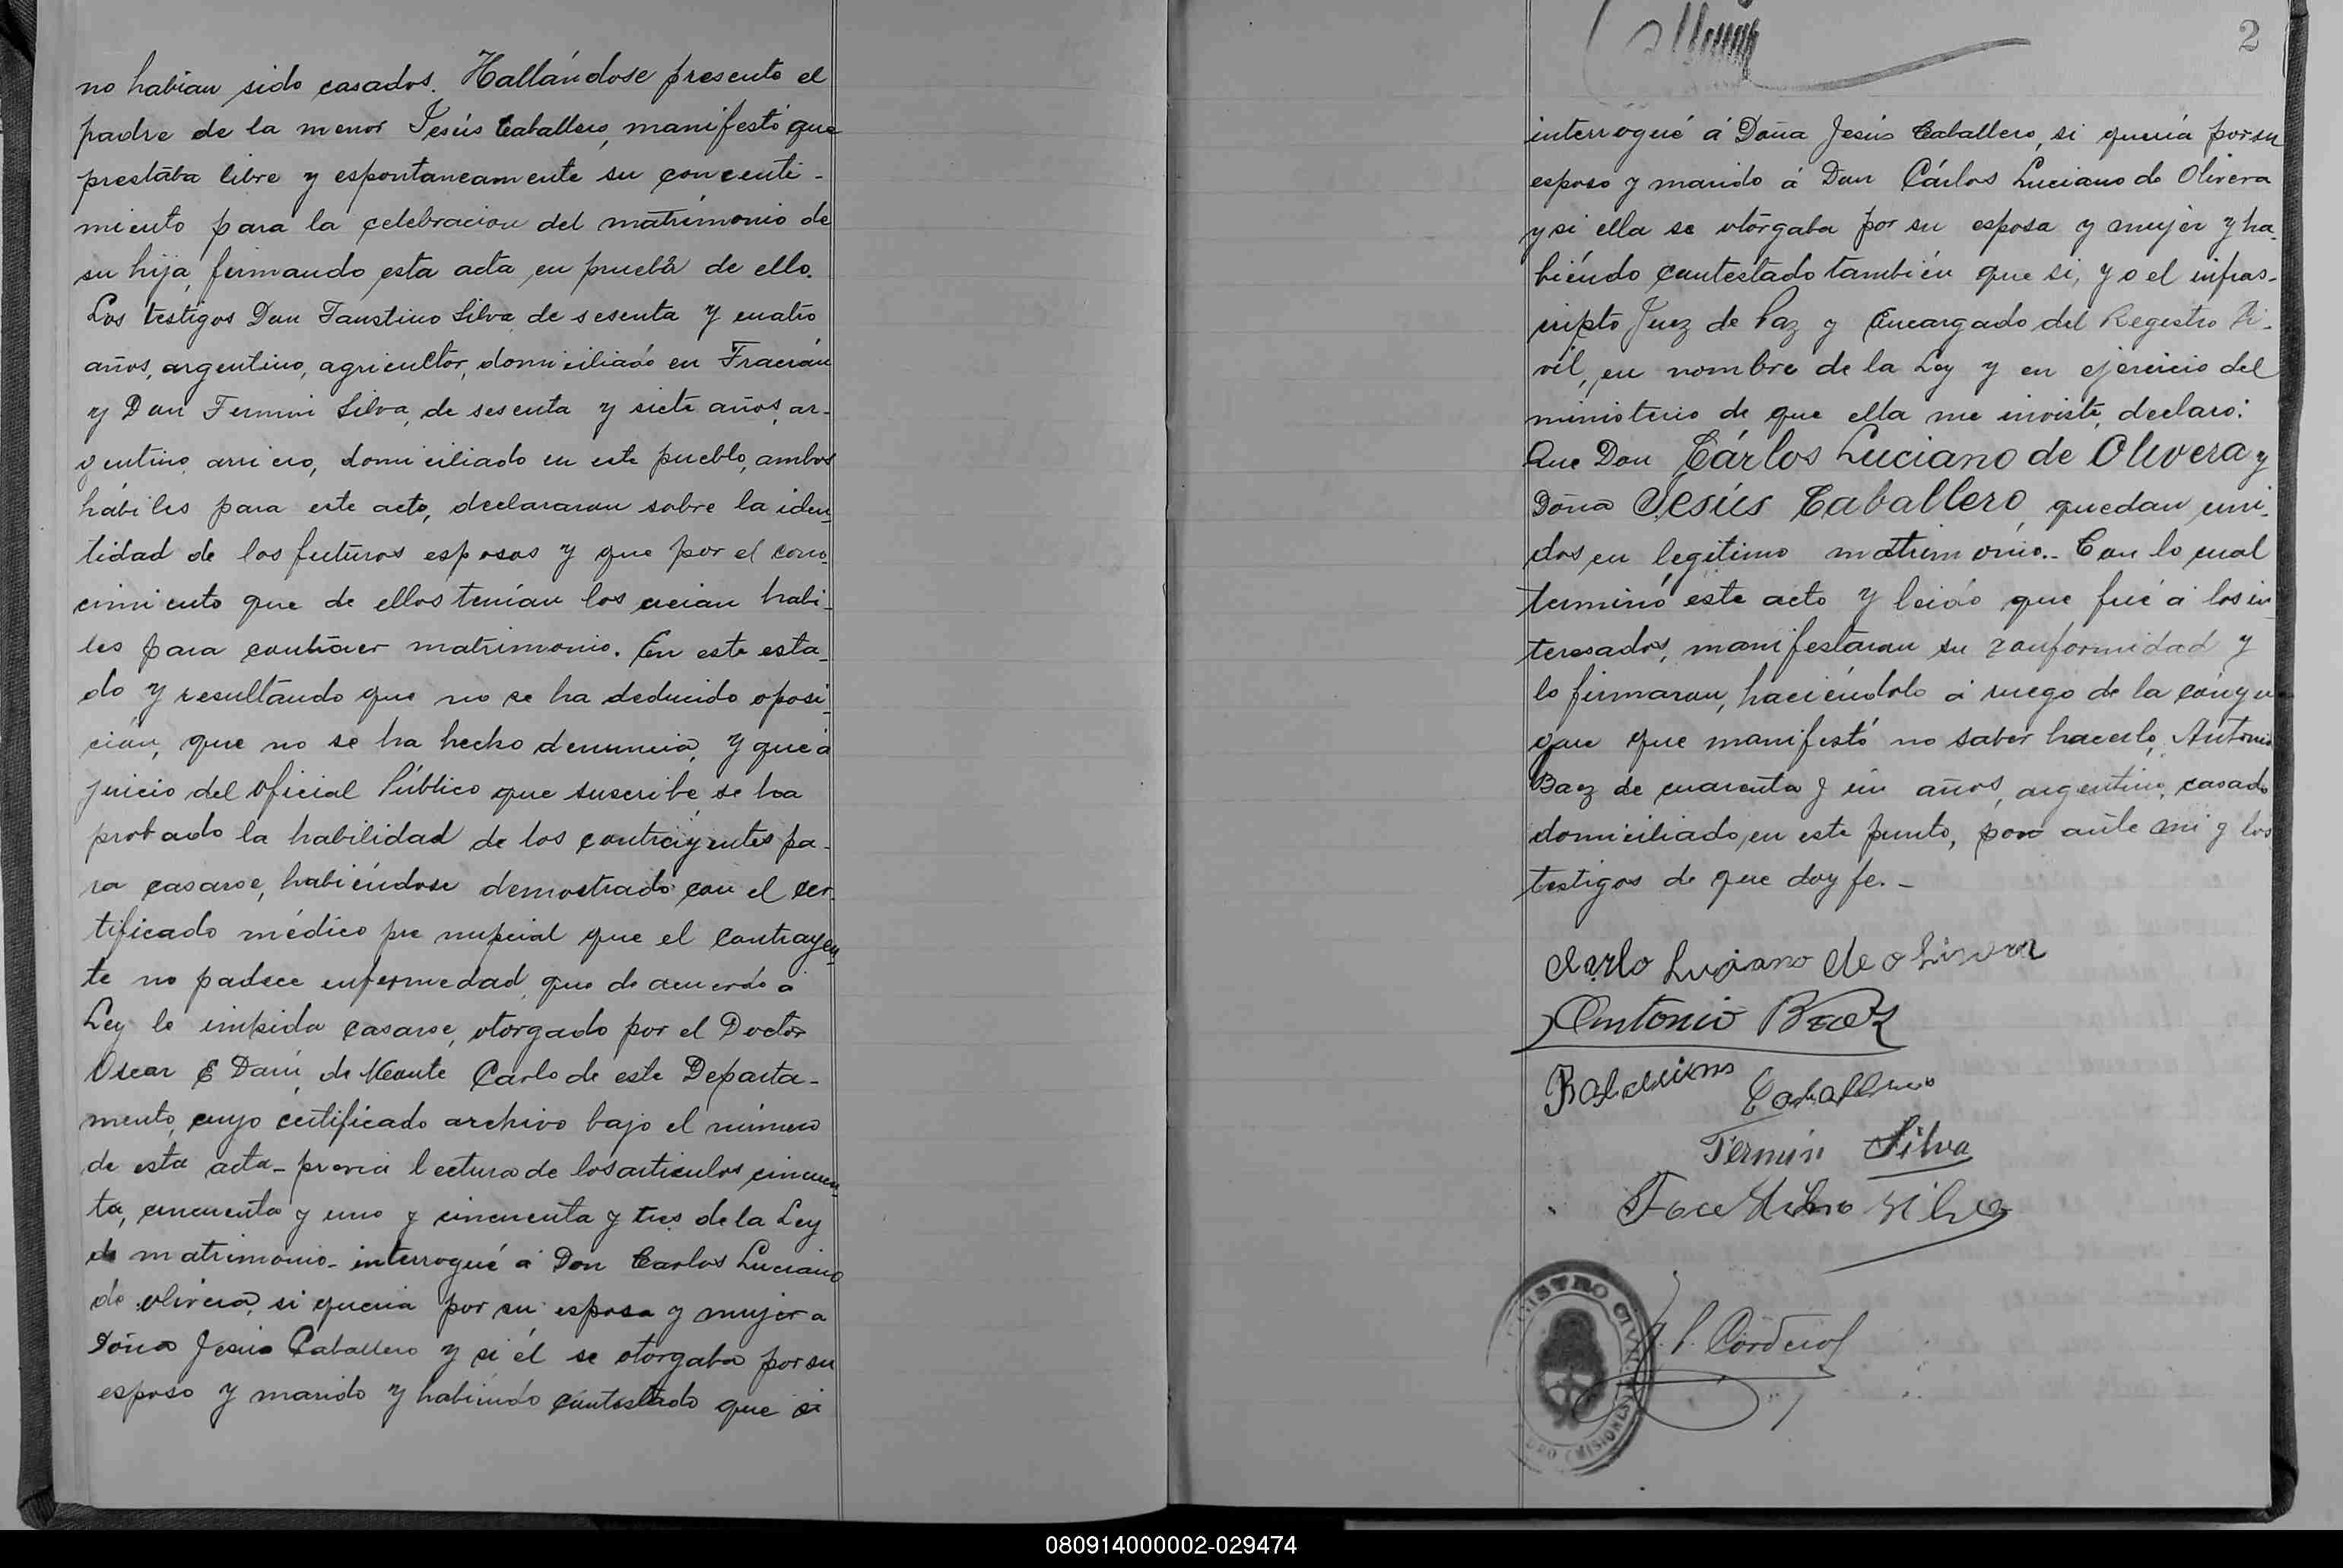 no habian sido casados. Hallándose presente el
padre de la menor Jesús Caballero, manifestó que
prestaba libre y espontaneamente su concenti-
miento para la celebracion del matrimonio de
su hija, firmando esta acta en prueba de ello.
Los testigos Don Faustino Silva de sesenta y cuatro
años, argentino, agricultor, domiciliado en Fracrán
y Don Fermin Silva, de sesenta y siete años, ar-
gentino, arriero, domiciliado en este pueblo, ambos
hábiles para este acto, declararon sobre la iden-
tidad de los futuros esposos y que por el cono-
cimiento que de ellos tenían los creian habi-
les para contraer matrimonio. En este esta-
do y resultando que no se ha deducido oposi-
ción, que no se ha hecho denuncia, y que á
juicio del Oficial Público que suscribe se ha
probado la habilidad de los contrayentes pa-
ra casarse, habiéndose demostrado con el cer-
tificado médico pre nupcial que el contrayen-
te no padece enfermedad, que de acuerdo á
Ley le impida casarse, otorgado por el Doctor
Oscar E de Monte Carlo de este Departa-
mento, cuyo certificado archivo bajo el número
de esta acta - previa lectura de los articulos cincuen-
ta, cincuenta y uno y cincuenta y tres de la Ley
de matrimonio - interrogué á Don Carlos Luciano
de Olivera, si queria por su esposa y mujer a
Doña Jesús Caballero y si él se otorgaba por su
esposo y marido y habiendo contestado que si
2
interrogué á Doña Jesús Caballero, si quería por su
esposo y marido á Don Cárlos Luciano de Olivera
y si ella se otorgaba por su esposa y mujer y ha-
biéndo contestado también que si, yo el infras-
cripto Juez de Paz y Encargado del Registro Ci-
vil, en nombre de la Ley y en ejercicio del
ministerio de que ella me inviste, declaro:
Que Don Cárlos Luciano de Olivera y
Doña Jesús Caballero, quedan uni-
dos en legitimo matrimonio.- Con lo cual
terminó este acto y leido que fué á los in-
teresados, manifestaron su conformidad y
lo firmaron, haciéndolo á ruego de la cónyu-
gue que manifestó no saber hacerlo, Antonio
Baez de cuarenta y un años, argentino, casado
domiciliado en este punto, por ante mi y los
testigos de que doy fe.-
Carlo Luciano de olivera
Antonio Baez
Caballero
Fermin Silva
Silva
Cordero
REGISTRO CIVIL
MISIONES
080914000002-029474